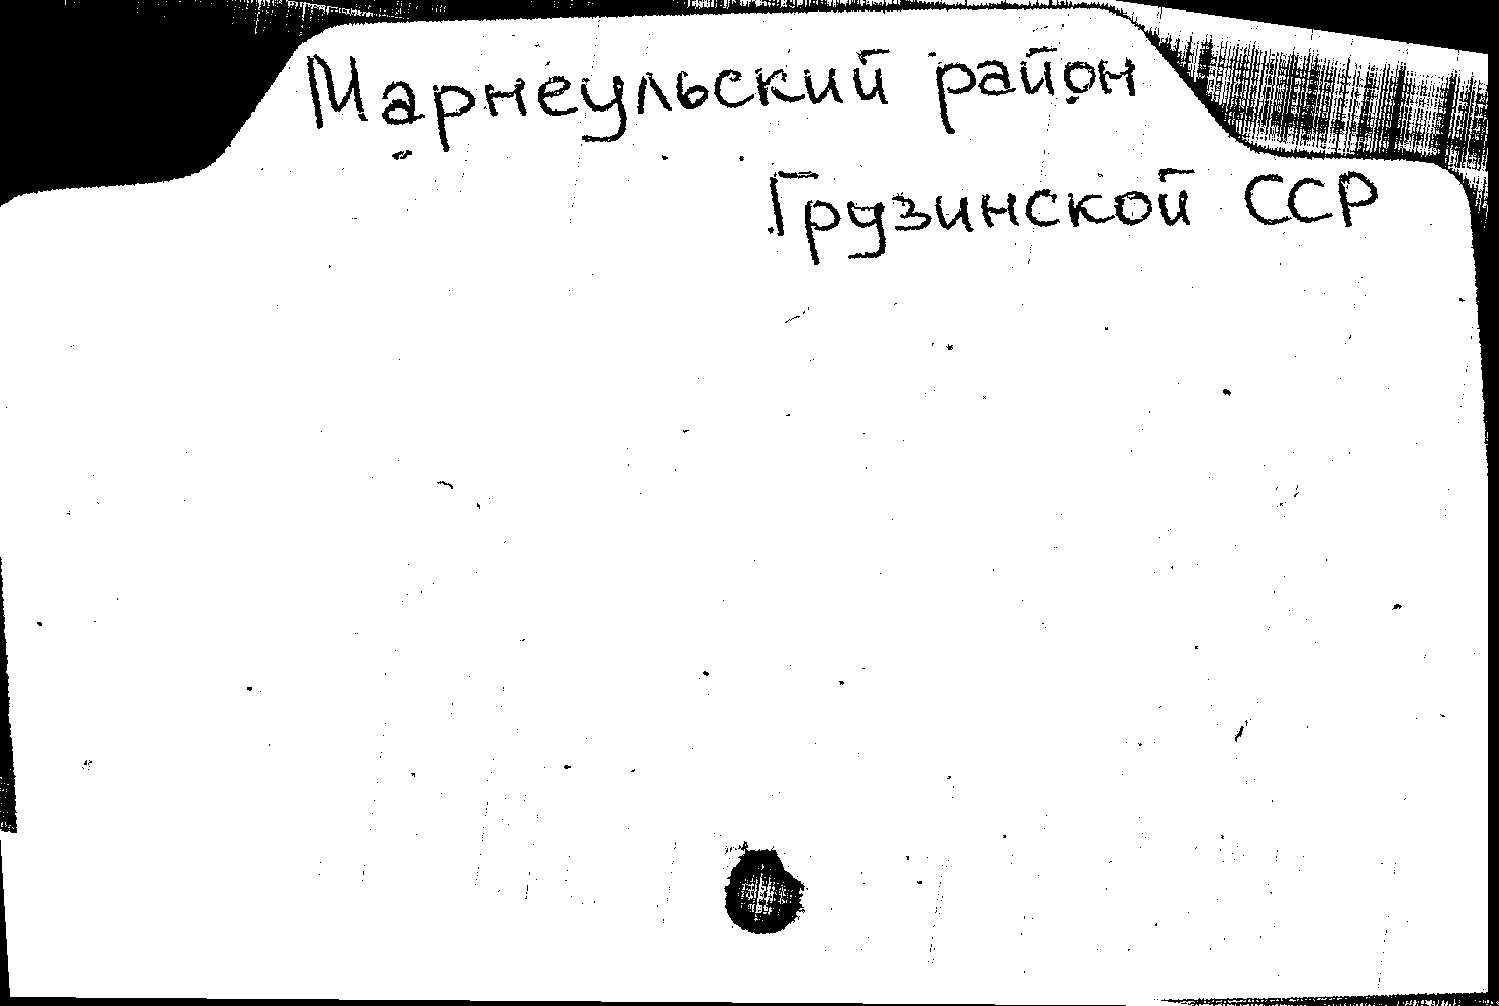 Марнеульский район
Грузинской ССР